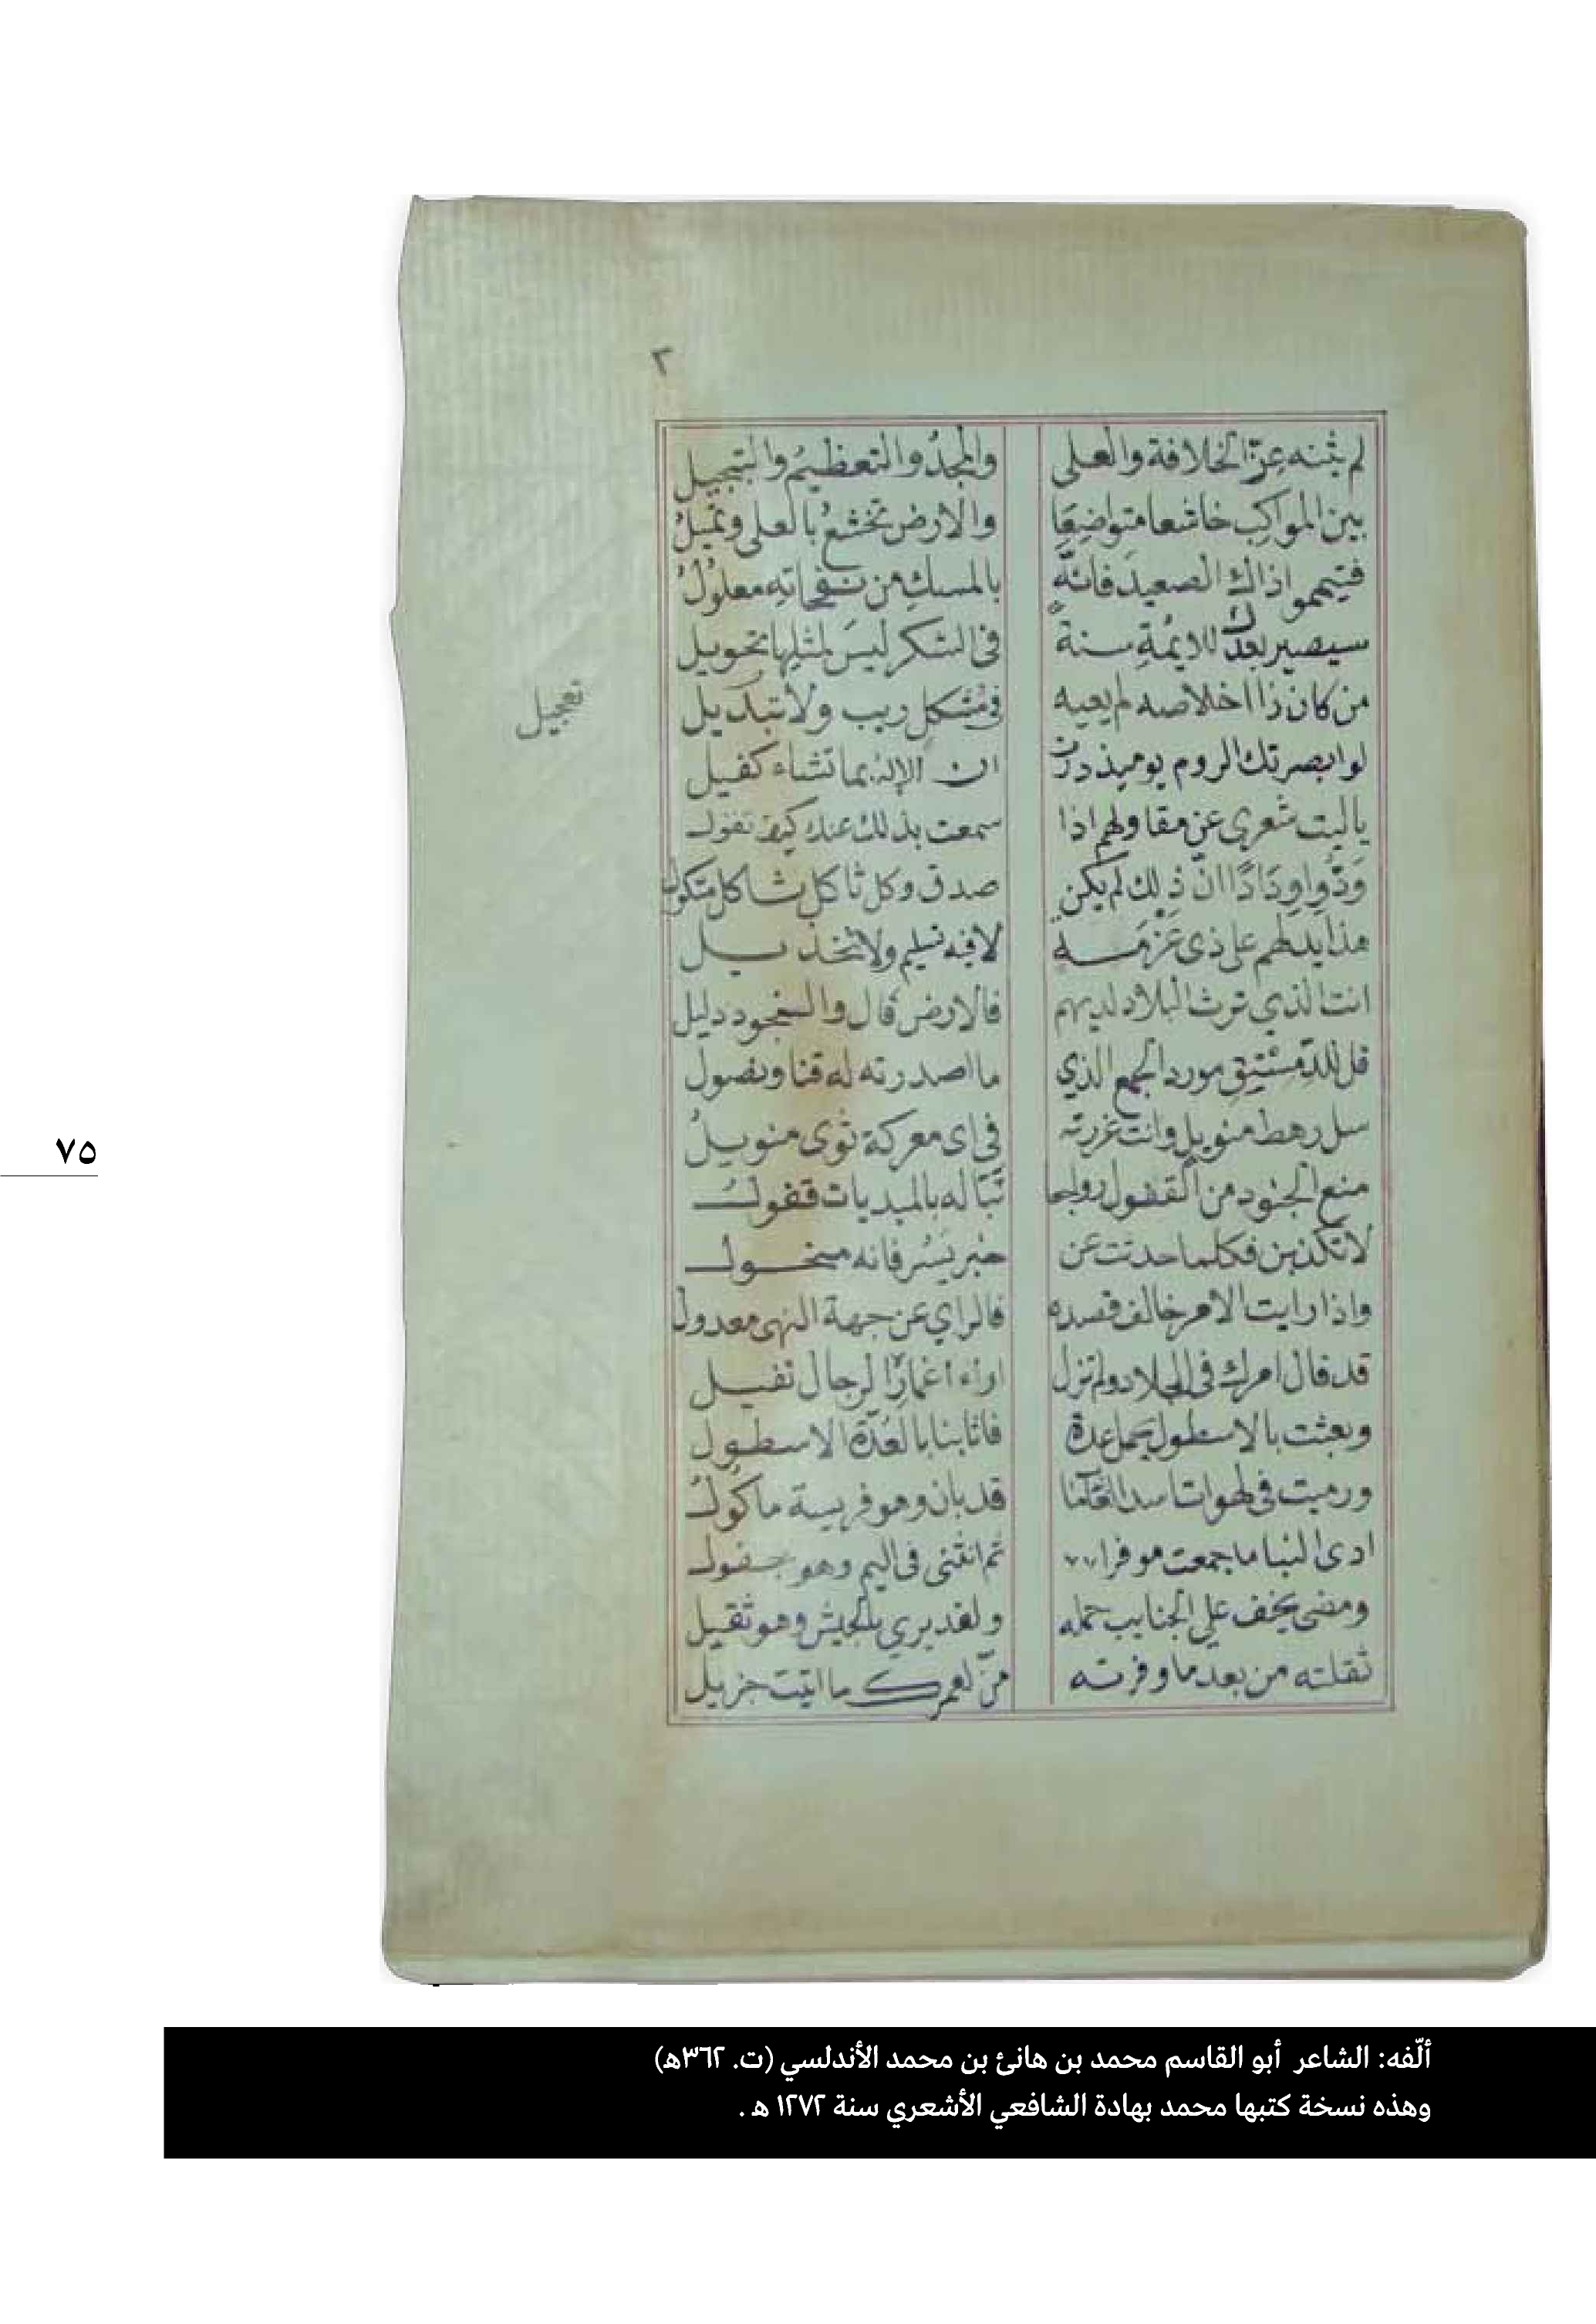 ٢
لم يثنه عزّ الخلافة والعلى والمجدُ والتعظيمُ والتبجيل
بين المواكب خاشعا متواضعًا والارض تخشع بالعلى وتميلُ
فتيمموا ذاك الصعيدَ فانهُ بالمسكِ من نفحاته معلولُ
سيصير بعدك للايمةِ سنةً في الشكر ليسَ لمثلها تحويل
من كان ذا اخلاصه لم يعيه في مشكل ريب ولا تبديل
تعجيل
لو ابصرتك الروم يوميذ درت ان الإلهَ بما تشاء كفيل
ياليت شعرى عن مقاولهم اذا سمعت بذلك عنك كيف تقول
وَدّوا وِدَادًا انّ ذلك لم يكن صدق وكل ثاكل مثكول
هذا يدلهم على ذى عَزْمَة لا فيه تسليم ولا تخذيل
انت الذي ترث البلاد لديهم فالارض فال والسجود دليل
قل للدّمستق مورد الجمع الذي ما اصدرته له قنا ونصول
سل رهط منويل وانت غررته في اى معركة ثوى منويلُ
منع الجنود من القفول رواجعا تبّا له بالمنديات قفول
لا تكذبن فكلما حدثت عن خبر يَسُر فانه منحول
واذا رايت الامر خالف قصده فالراي عن جهة النهى معدول
قد فال امرك في الجلاد ولم تزل اراء اغمار الرجال تفيل
وبعثت بالاسطول يحمل عدة فاثابنا بالعُدّة الاسطول
ورميت في لهوات اسد الغاب ما قد بان وهو فريسة ماكُول
ادى الينا ما جمعت موفرا ثم انثنى في اليم وهو جفول
ومضى يخف على الجنايب حمله ولقد يرى بالجيش وهو ثقيل
ثقلته من بعد ما وفرته منّ لعمرك ما اتيت جزيل
٧٥
ألّفه: الشاعر أبو القاسم محمد بن هانئ بن محمد الأندلسي (ت. ٣٦٢هـ)
وهذه نسخة كتبها محمد بهادة الشافعي الأشعري سنة ١٢٧٢ هـ .